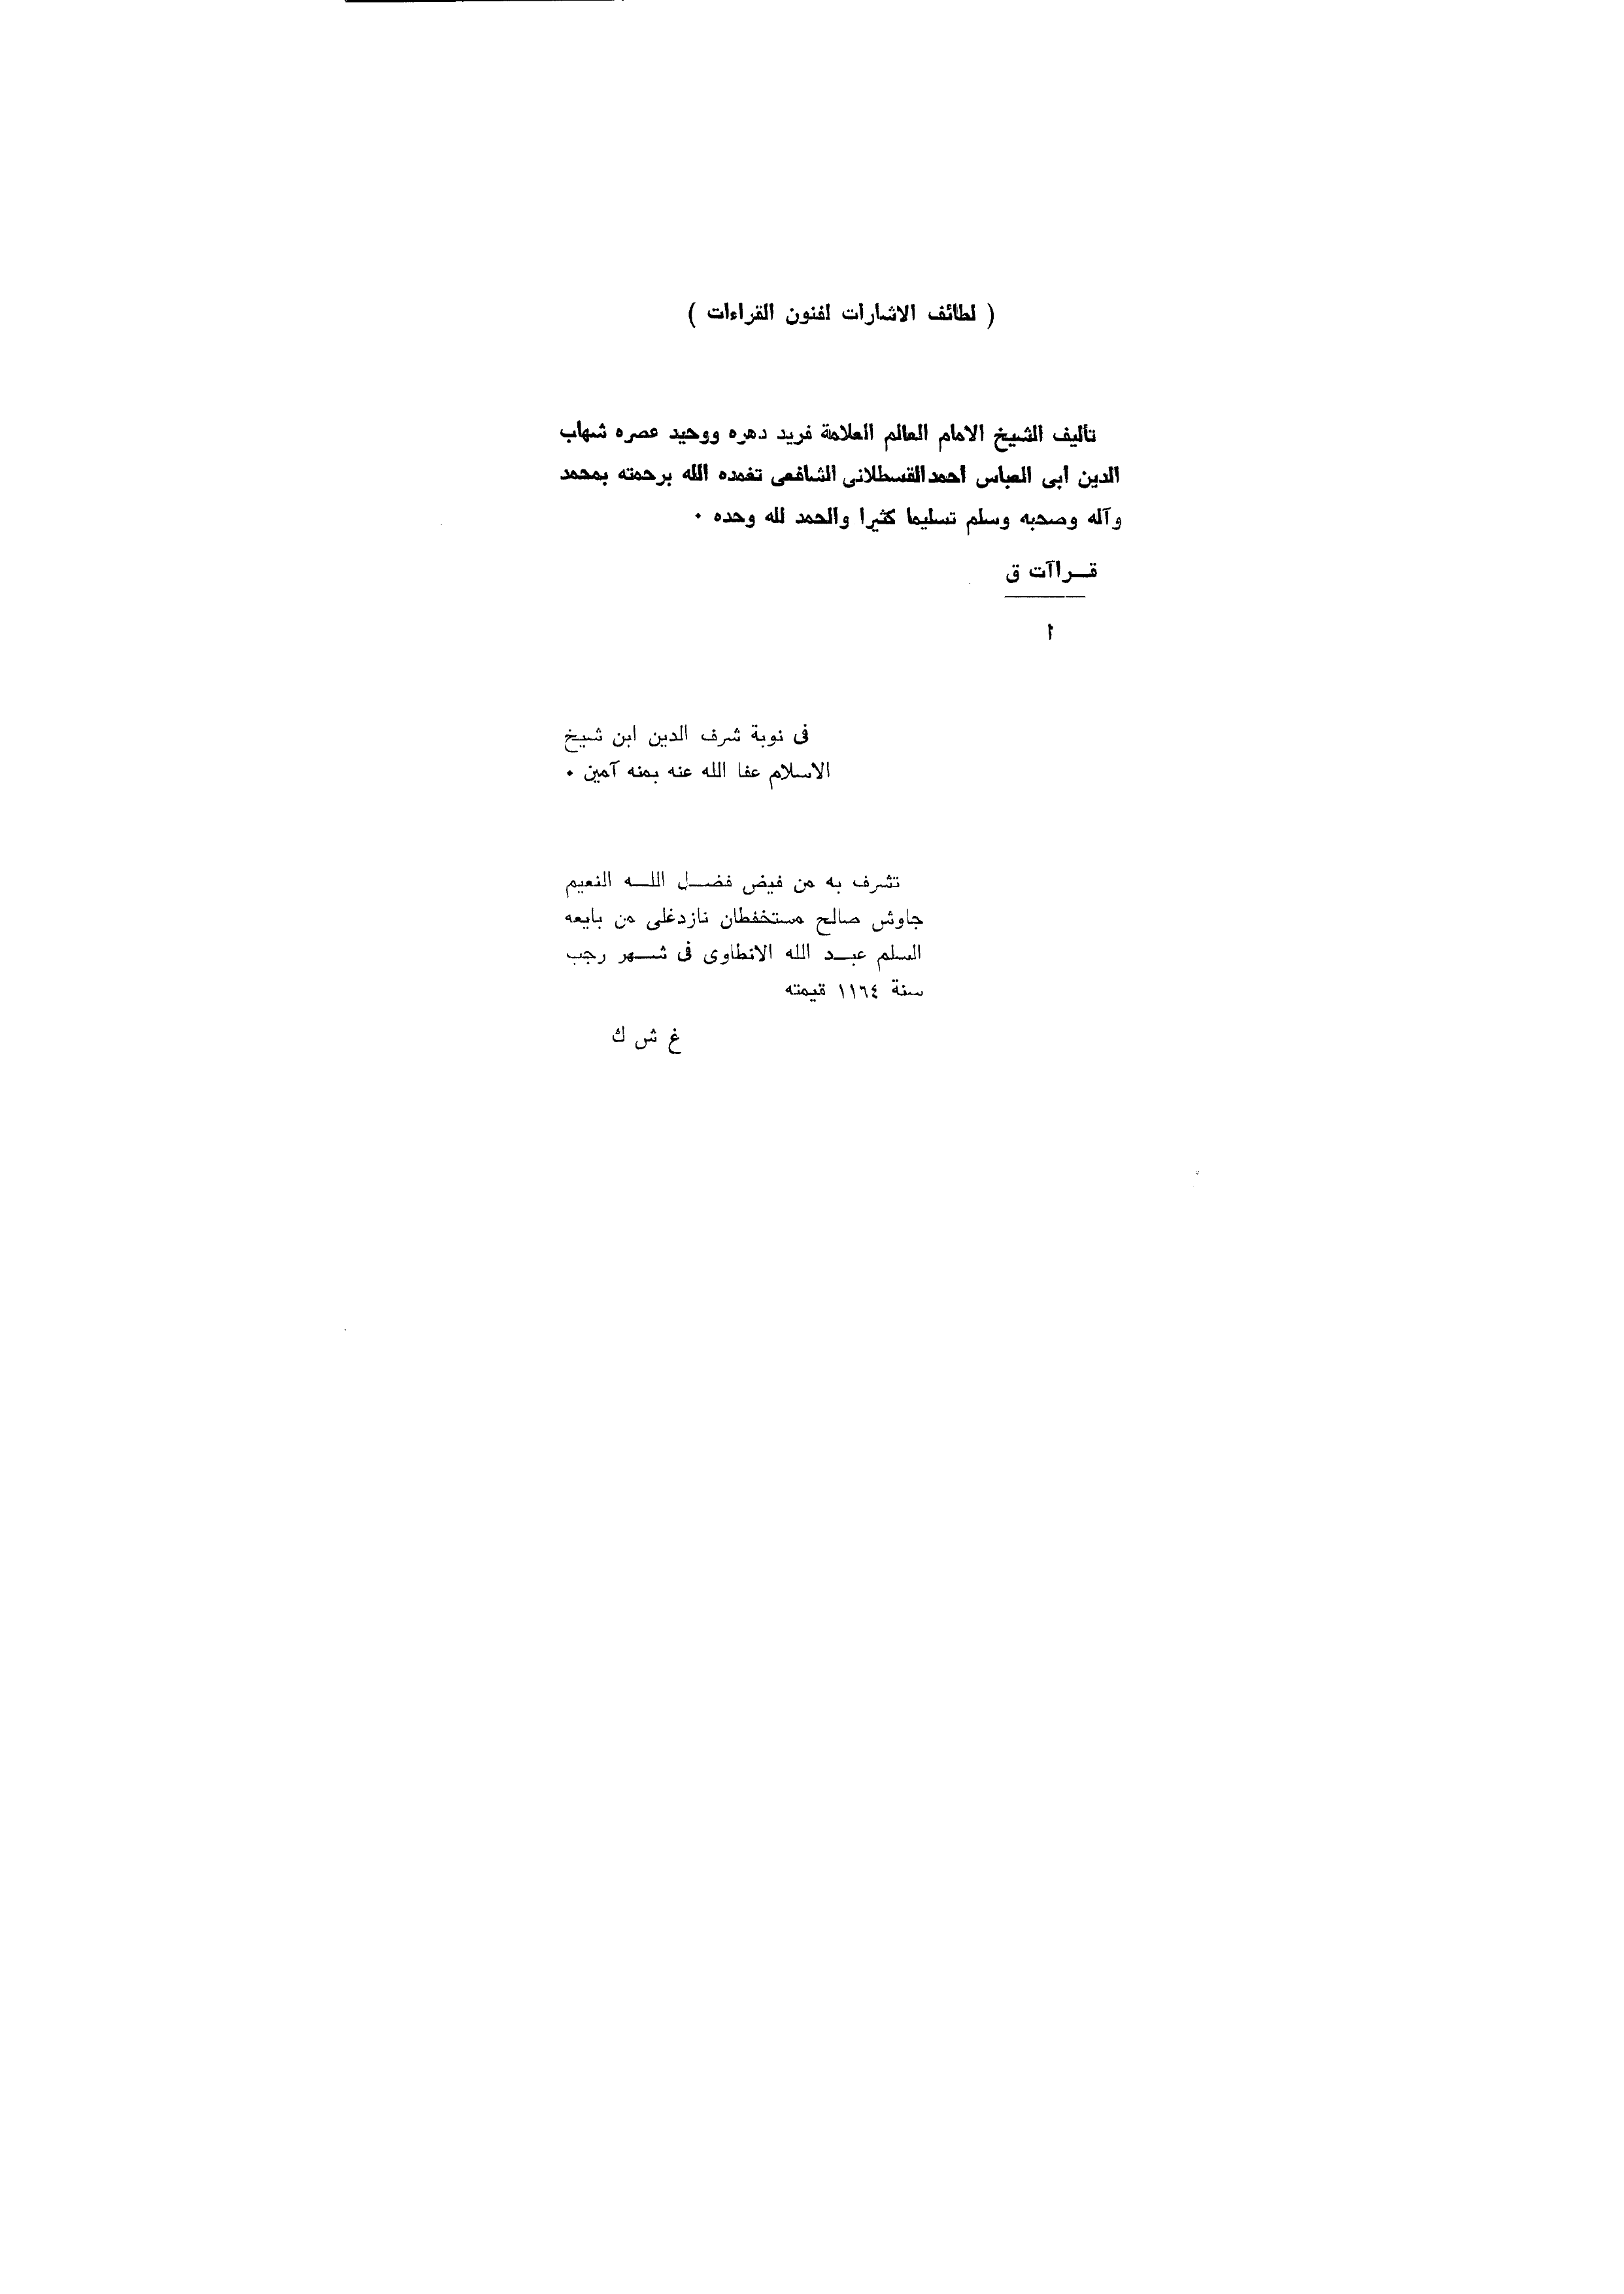 ( لطائف الاشارات لفنون القراءات )
تأليف الشيخ الامام العالم العلامة فريد دهره ووحيد عصره شهاب
الدين أبى العباس أحمد القسطلانى الشافعى تغمده الله برحمته بمحمد
وآله وصحبه وسلم تسليما كثيرا والحمد لله وحده ٠
قــراآت ق
أ
فى نوبة شرف الدين ابن شيخ
الاسلام عفا الله عنه بمنه آمين ٠
تشرف به من فيض فضــل اللــه النعيم
جاوش صالح مستخفطان نازدغلى من بايعه
السلم عبــد الله الانطاوى فى شــهر رجب
سنة ١١٦٤ قيمته
غ ش ك